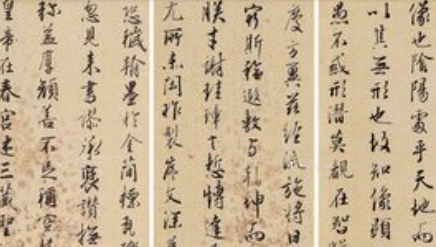 像也陰陽處乎天地而
以其無形也故知像顯
愚不惑形潛莫覩在智
慶方冀茲經流施將日
窮斯福遐敷与乾坤而
朕才謝珪璋言慙博達
尤所未閑昨製序文深
恐穢翰墨於金簡標瓦礫
忽見來書謬承襃讚撫
称益厚顏善不足稱空
皇帝在春宮述三藏聖